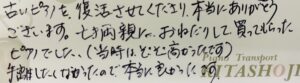 古いピアノを復活させてくださり、本当にありがとう
ございます。亡き両親に、おねだりして買ってもらった
ピアノでした。(当時は、とても高かったです)
手離したくなかったので本当によかったです
Piano Transport
KITASHOJI